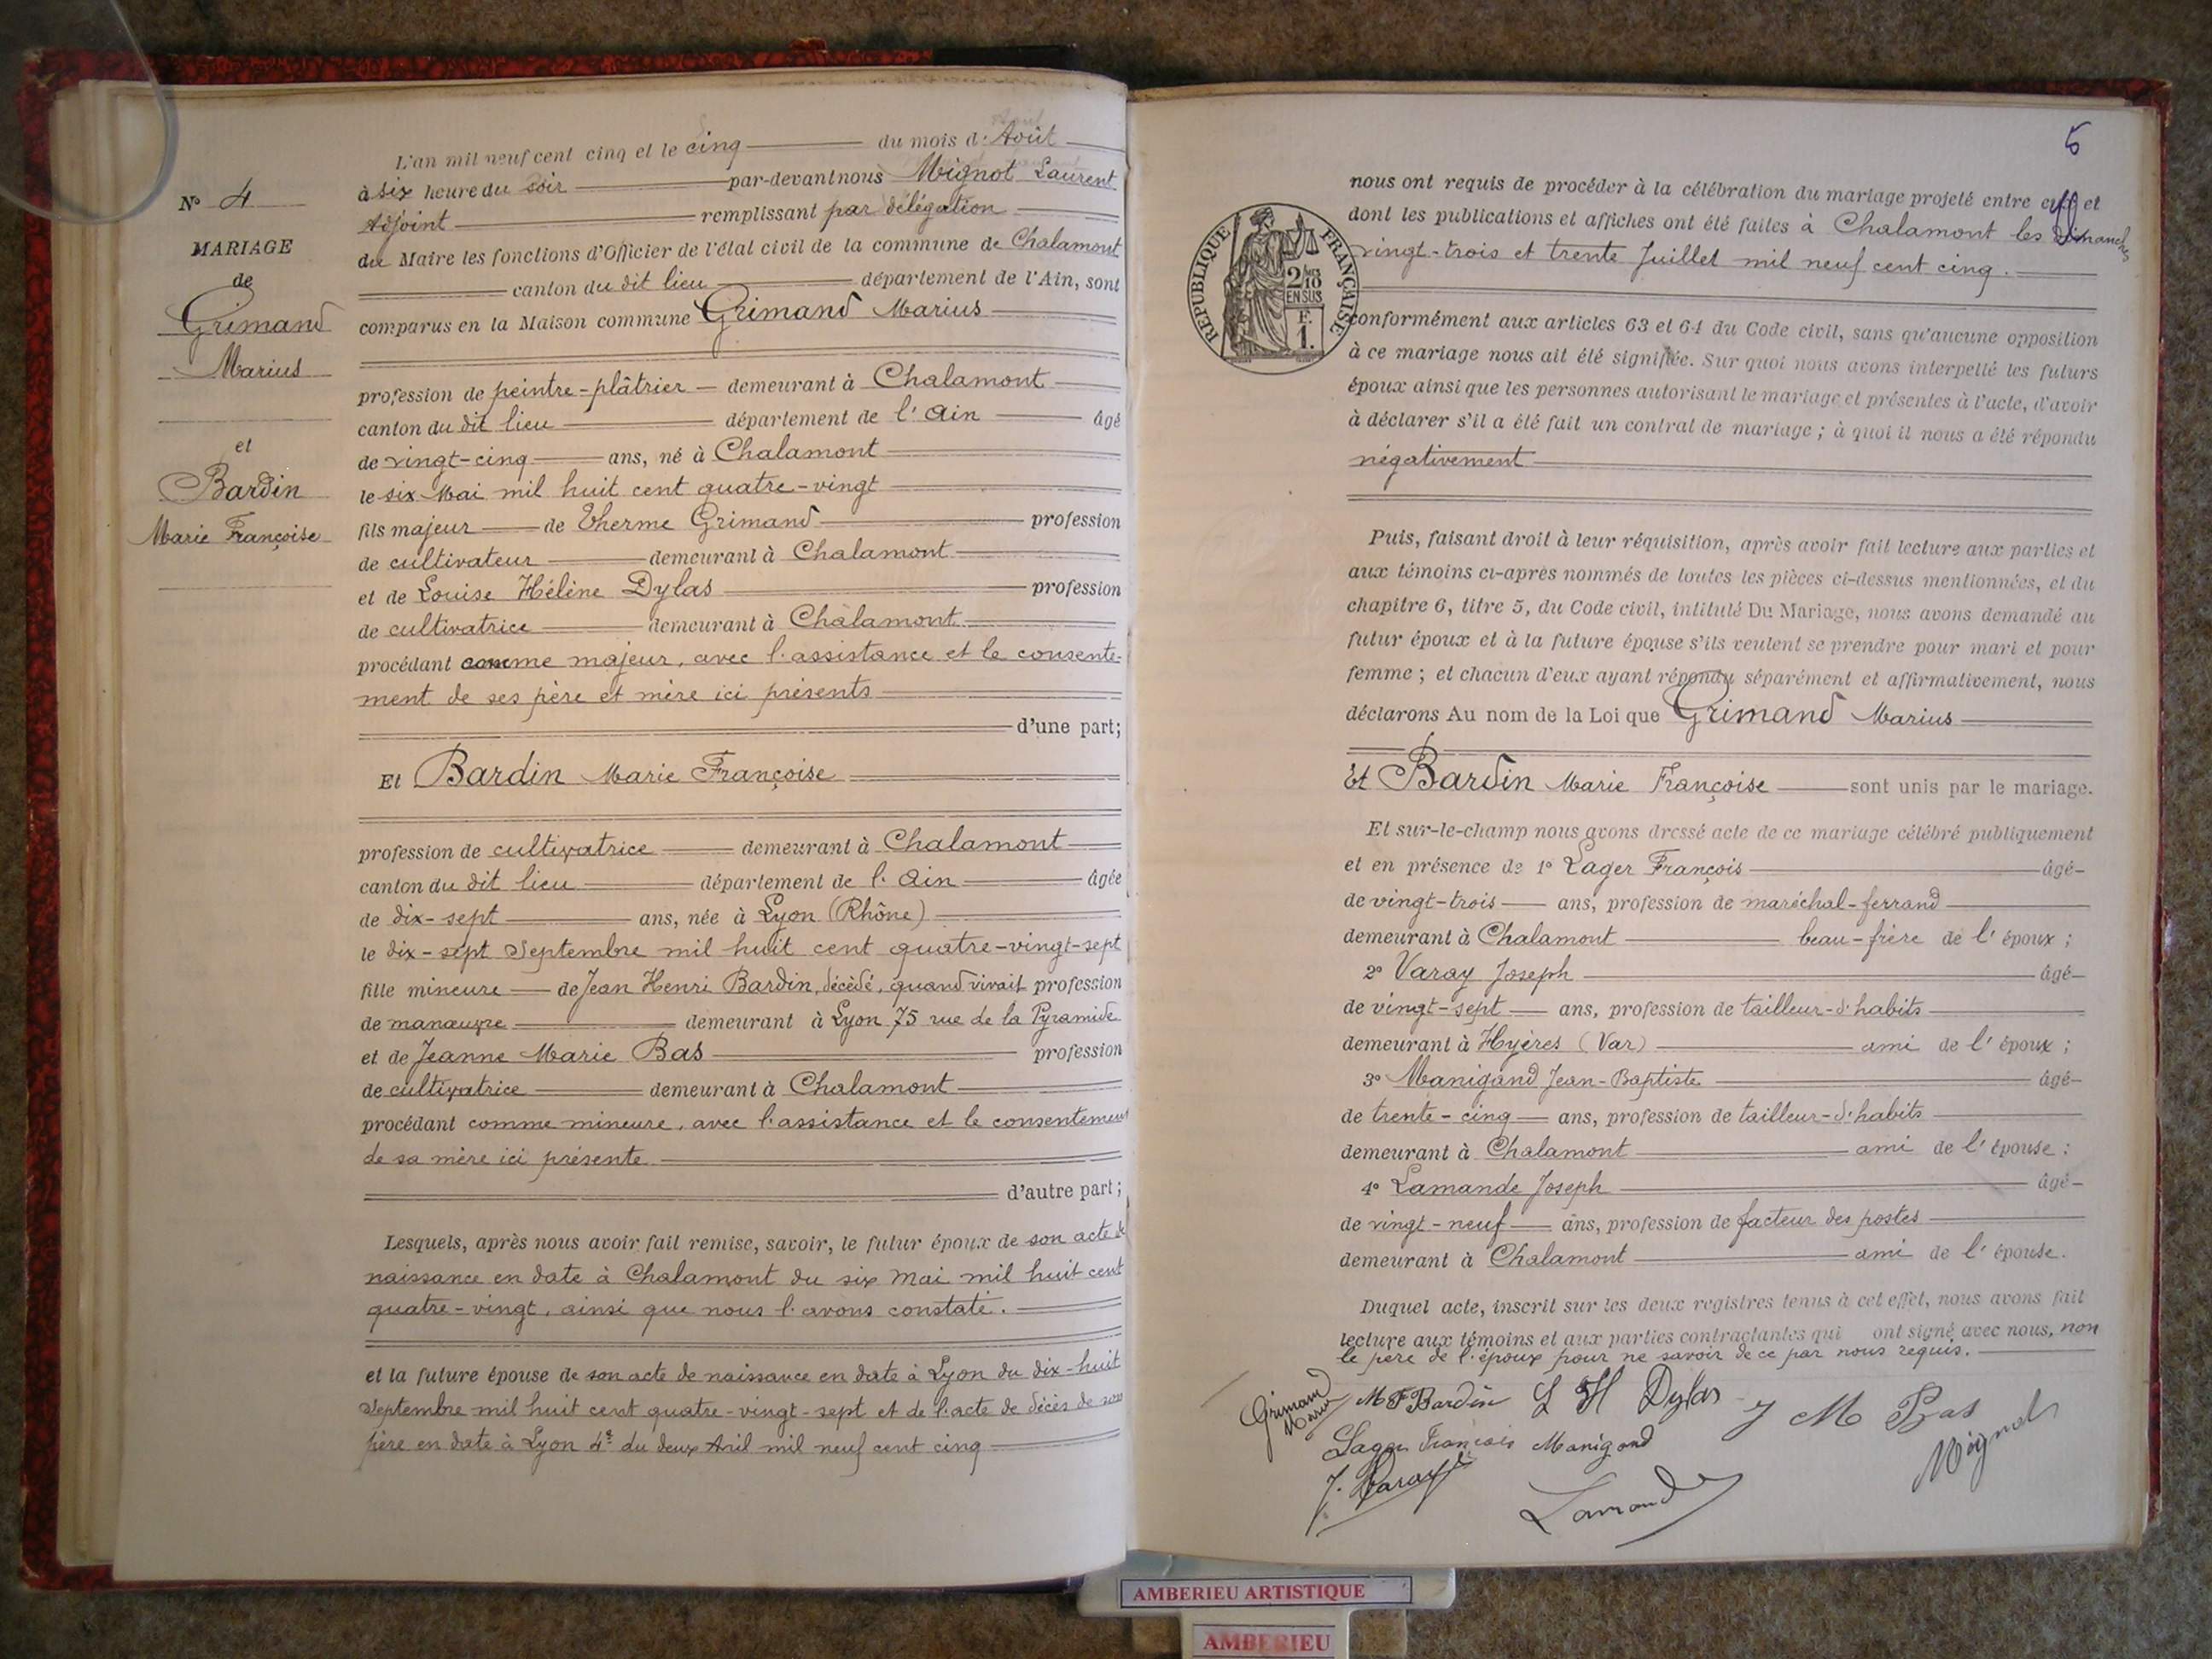 L'an mil neuf cent cinq et le cinq du mois d'Août
à six heure du soir par-devant nous Mignot Laurent
Adjoint remplissant par délégation
du Maire les fonctions d'Officier de l'état civil de la commune de Chalamont
canton du dit lieu département de l'Ain, sont
comparus en la Maison commune Grimand Marius
profession de peintre-plâtrier demeurant à Chalamont
canton du dit lieu département de l'Ain âgé
de vingt-cinq ans, né à Chalamont
le six Mai mil huit cent quatre-vingt
fils majeur de Therme Grimand profession
de cultivateur demeurant à Chalamont
et de Louise Hélène Dylas profession
de cultivatrice demeurant à Chalamont
procédant comme majeur, avec l'assistance et le consente-
ment de ses père et mère ici présents
d'une part;
Et Bardin Marie Françoise
profession de cultivatrice demeurant à Chalamont
canton du dit lieu département de l'Ain âgée
de dix-sept ans, née à Lyon (Rhône)
le dix-sept Septembre mil huit cent quatre-vingt-sept
fille mineure de Jean Henri Bardin, décédé, quand vivait profession
de manœuvre demeurant à Lyon 75 rue de la Pyramide
et de Jeanne Marie Bas profession
de cultivatrice demeurant à Chalamont
procédant comme mineure, avec l'assistance et le consentement
de sa mère ici présente
d'autre part;
Lesquels, après nous avoir fait remise, savoir, le futur époux de son acte de
naissance en date à Chalamont du six Mai mil huit cent
quatre-vingt, ainsi que nous l'avons constaté.
et la future épouse de son acte de naissance en date à Lyon du dix-huit
Septembre mil huit cent quatre-vingt-sept et de l'acte de décès de son
père en date à Lyon 4e du deux Avril mil neuf cent cinq
N° 4
MARIAGE
de
Grimand
Marius
et
Bardin
Marie Françoise
5
nous ont requis de procéder à la célébration du mariage projeté entre eux et
dont les publications et affiches ont été faites à Chalamont les Dimanches
vingt-trois et trente Juillet mil neuf cent cinq.
RÉPUBLIQUE FRANÇAISE
2/10
EN SUS
F.
1.
conformément aux articles 63 et 64 du Code civil, sans qu'aucune opposition
à ce mariage nous ait été signifiée. Sur quoi nous avons interpellé les futurs
époux ainsi que les personnes autorisant le mariage et présentes à l'acte, d'avoir
à déclarer s'il a été fait un contrat de mariage; à quoi il nous a été répondu
négativement
Puis, faisant droit à leur réquisition, après avoir fait lecture aux parties et
aux témoins ci-après nommés de toutes les pièces ci-dessus mentionnées, et du
chapitre 6, titre 5, du Code civil, intitulé Du Mariage, nous avons demandé au
futur époux et à la future épouse s'ils veulent se prendre pour mari et pour
femme; et chacun d'eux ayant répondu séparément et affirmativement, nous
déclarons Au nom de la Loi que Grimand Marius
Et Bardin Marie Françoise sont unis par le mariage.
Et sur-le-champ nous avons dressé acte de ce mariage célébré publiquement
et en présence de 1° Lager François âgé
de vingt-trois ans, profession de maréchal-ferrand
demeurant à Chalamont beau-frère de l'époux;
2° Varay Joseph âgé
de vingt-sept ans, profession de tailleur-d'habits
demeurant à Hyères (Var) ami de l'époux;
3° Manigand Jean-Baptiste âgé
de trente-cinq ans, profession de tailleur-d'habits
demeurant à Chalamont ami de l'épouse:
4° Lamande Joseph âgé
de vingt-neuf ans, profession de facteur des postes
demeurant à Chalamont ami de l'épouse.
Duquel acte, inscrit sur les deux registres tenus à cet effet, nous avons fait
lecture aux témoins et aux parties contractantes qui ont signé avec nous, non
le père de l'époux pour ne savoir de ce par nous requis.
Grimand
M F Bardin L H Dylas J M Bas
Lager François Manigand Mignot
J. Varay
Lamande
AMBERIEU ARTISTIQUE
AMBERIEU